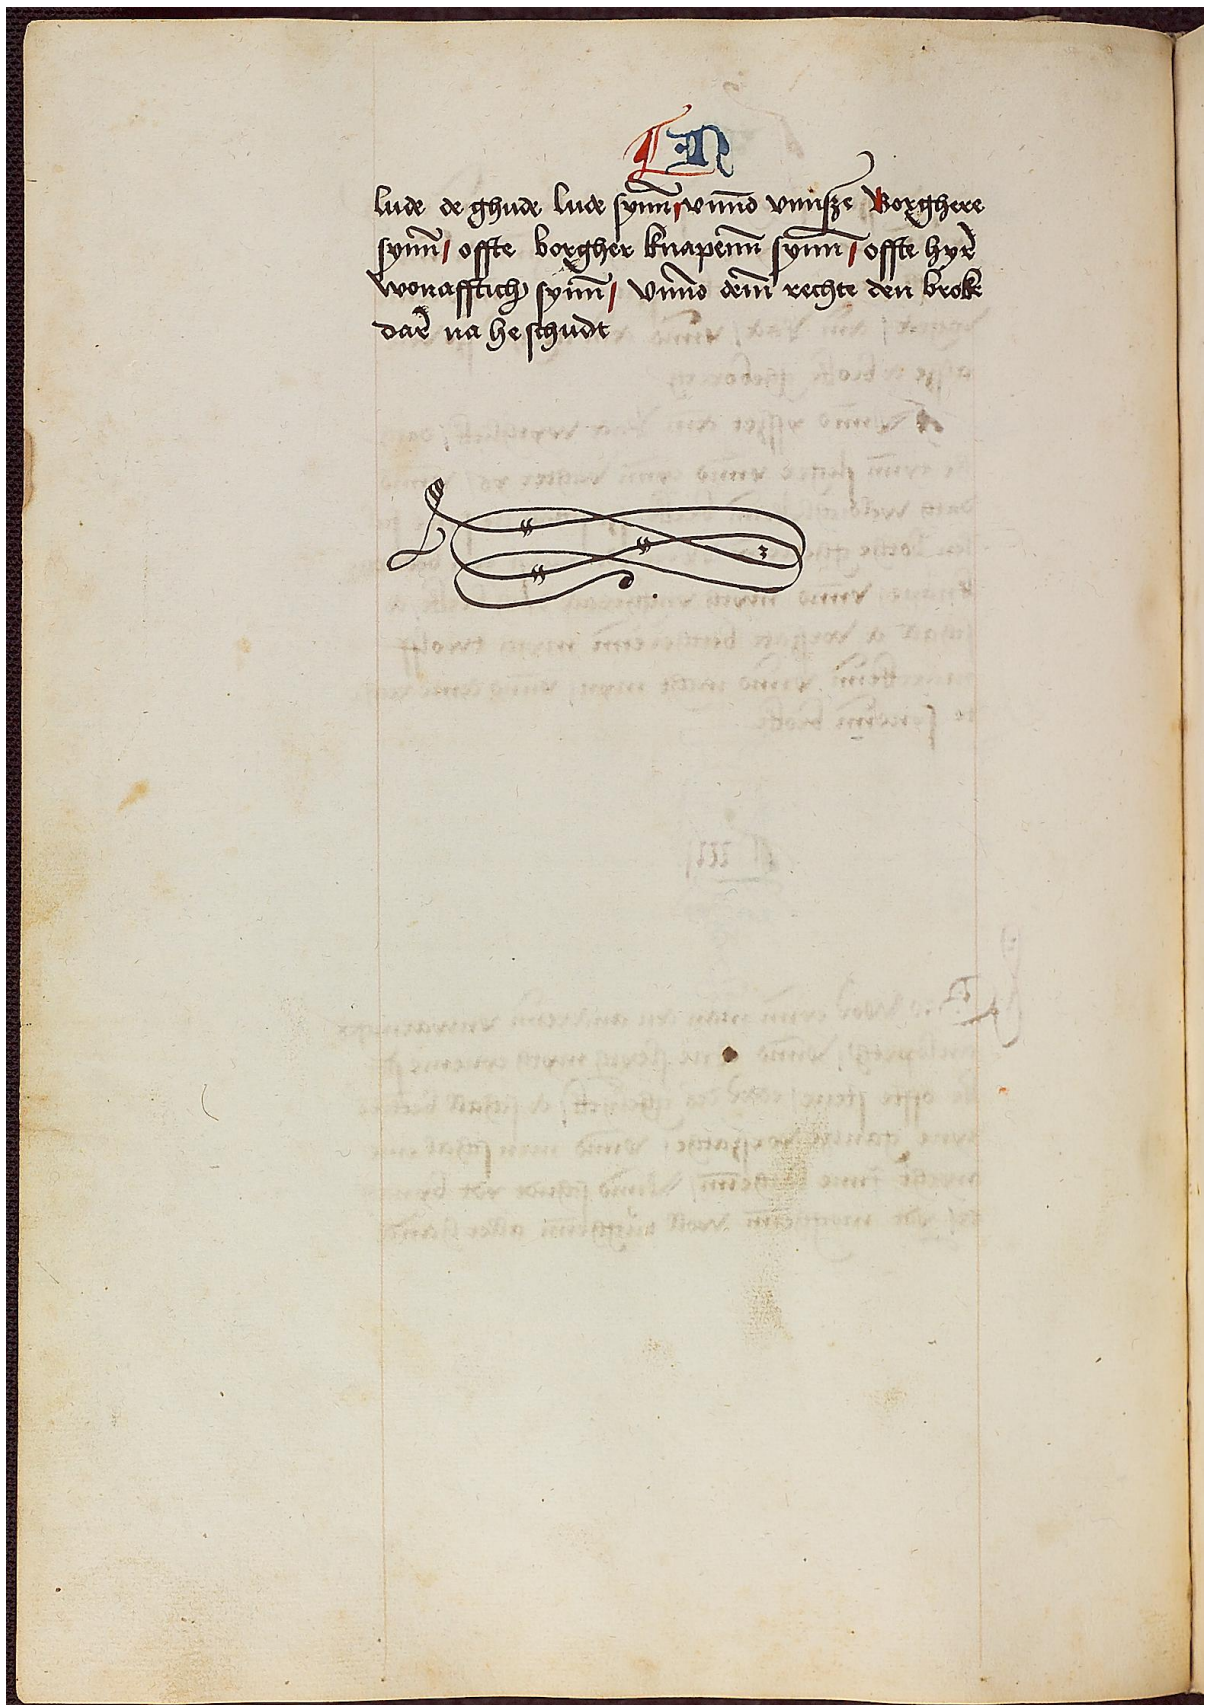 lude de ghude lude synn / vnnd vnnsze Borghere
synn / offte borgher knapenn synn / offte hyr
wonafftich synn / vnnd dem rechte den broke
dar na he schudt